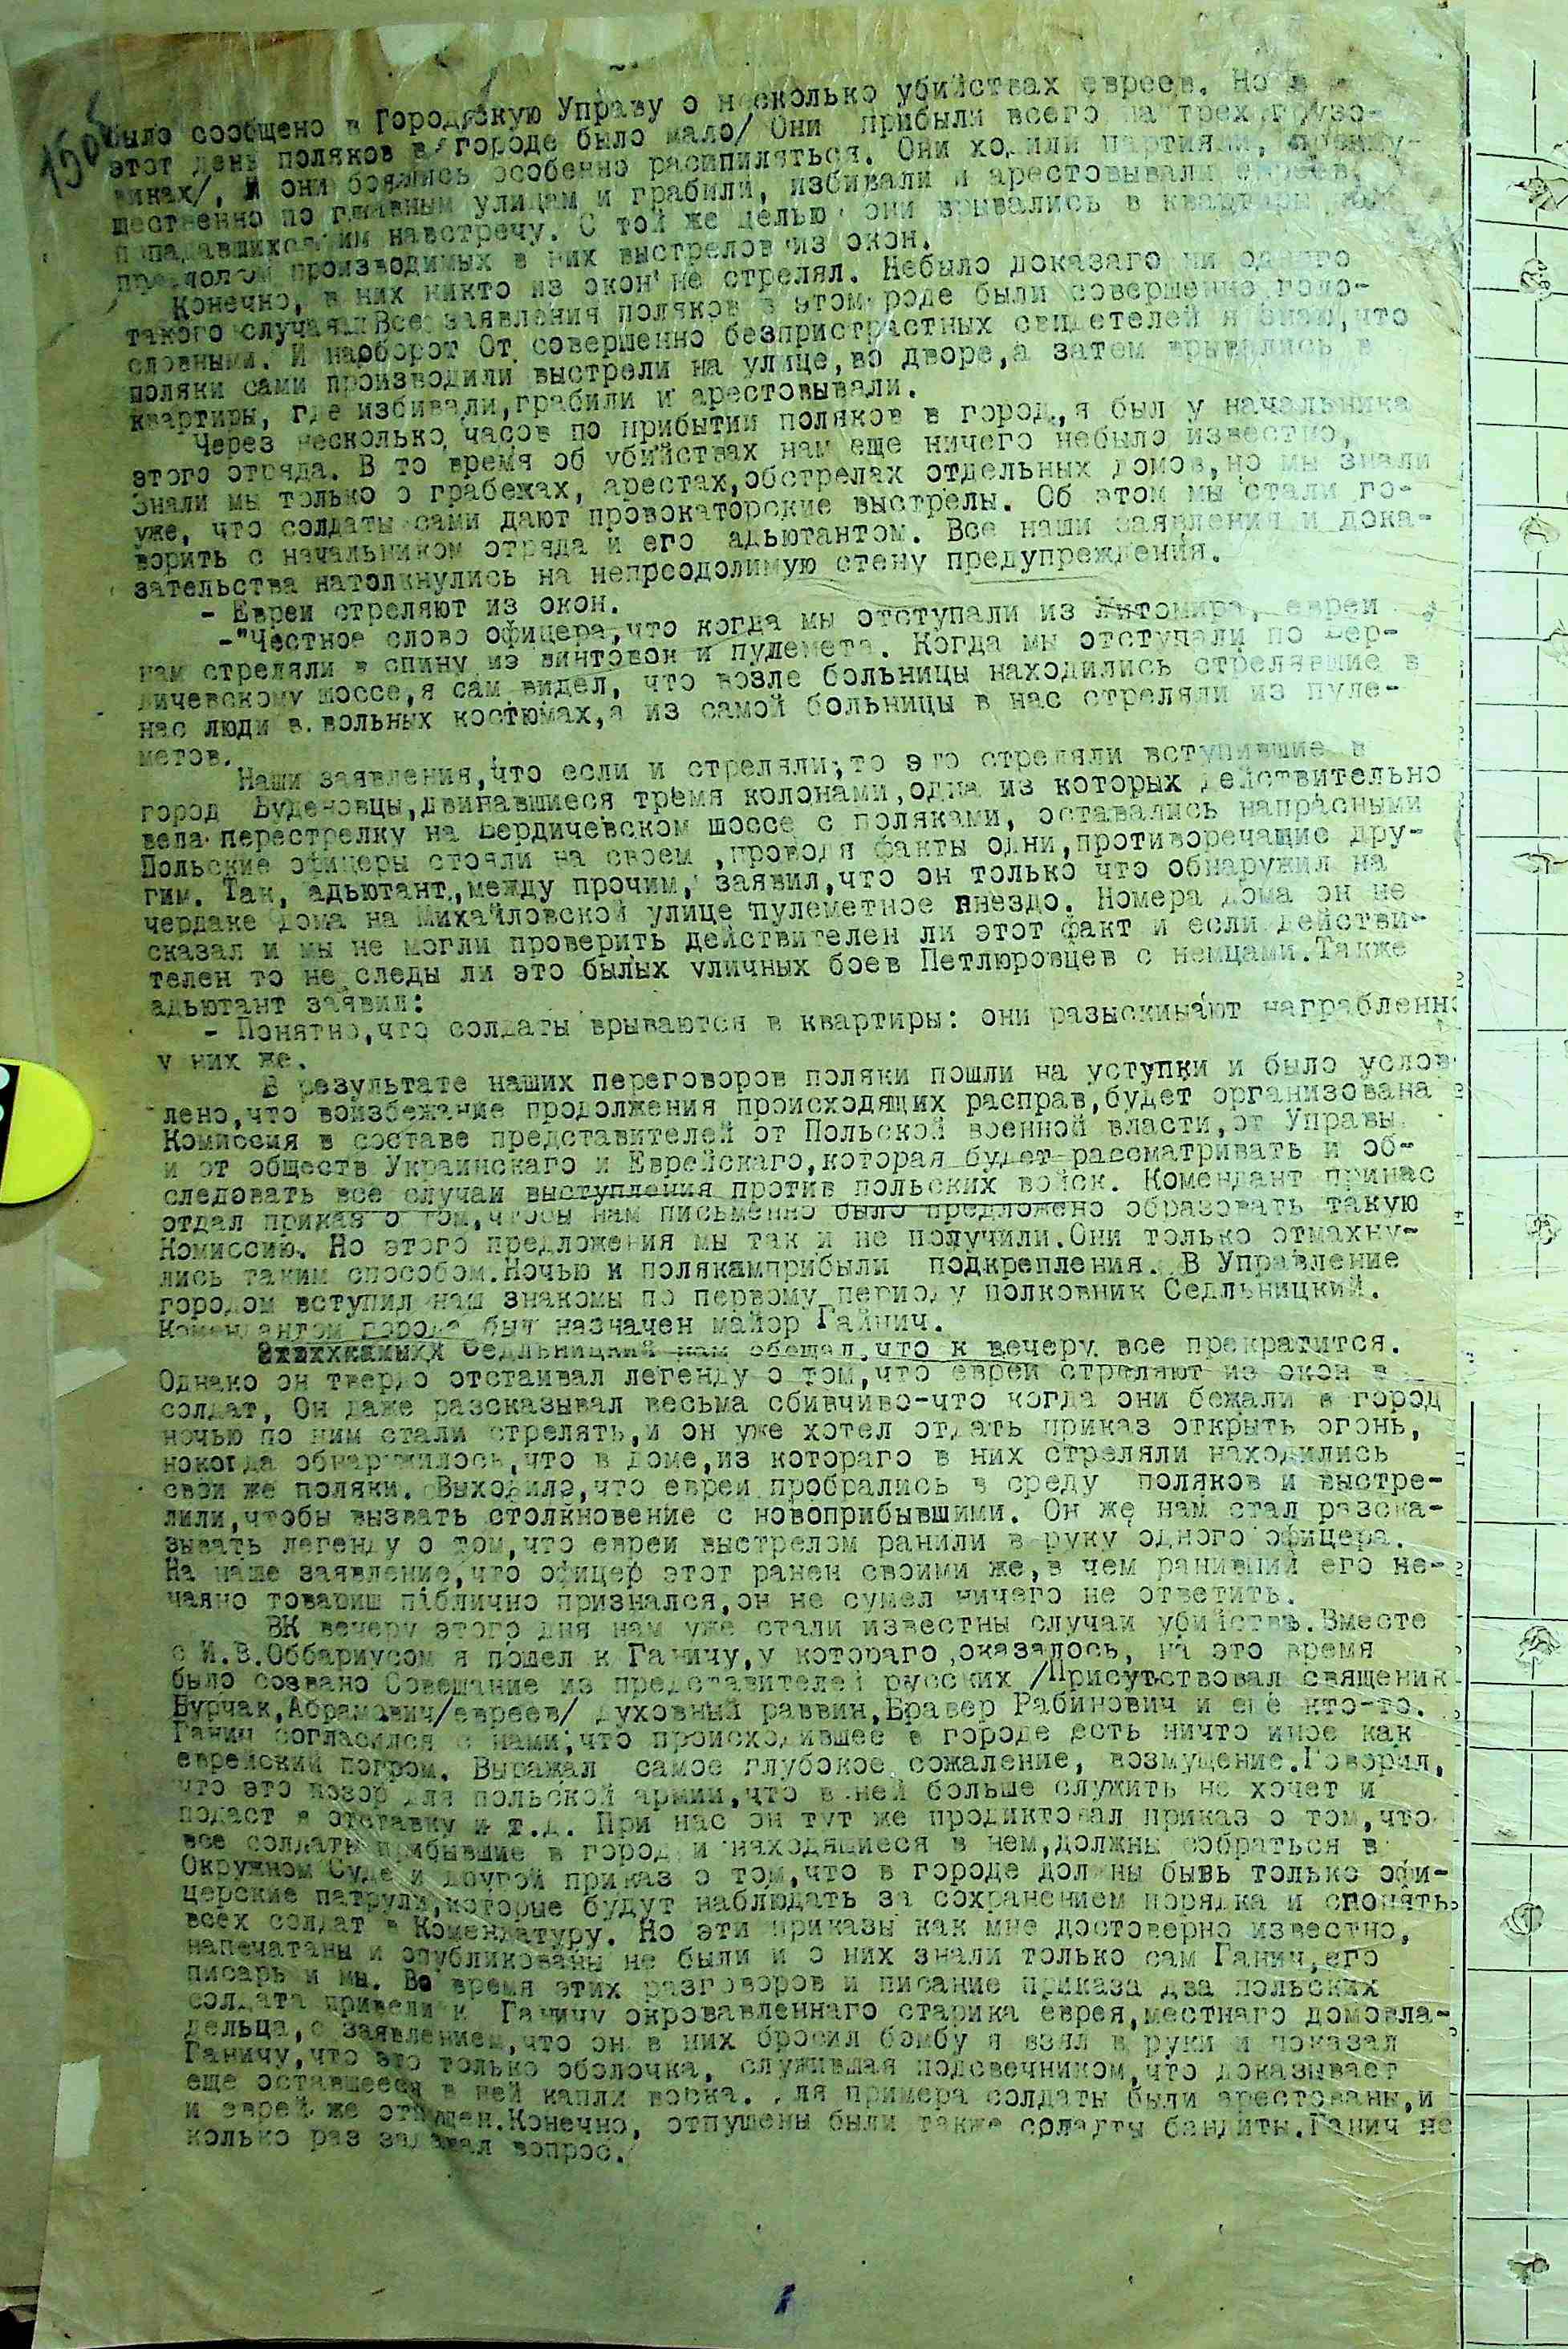 было сообщено в Городскую Управу о несколько убийствах евреев. Но в
этот день поляков в городе было мало/ Они прибыли всего на трех грузо-
виках/, и они боялись особенно распиляться. Они ходили партиями, преиму-
щественно по главным улицам и грабили, избивали и арестовывали евреев,
попадавшихся им навстречу. С той же целью они врывались в квартиры под
предлогом производимых в них выстрелов из окон.
Конечно, в них никто из окон не стрелял. Небыло доказаго ни одного
такого случая. Все заявления поляков в этом роде были совершенно голо-
словными. И наоборот От совершенно безпристрастных свидетелей я знаю, что
поляки сами производили выстрели на улице, во дворе, а затем врывались в
квартиры, где избивали, грабили и арестовывали.
Через несколько часов по прибытии поляков в город, я был у начальника
этого отряда. В то время об убийствах нам еще ничего небыло известно,
Знали мы только о грабежах, арестах, обстрелах отдельных домов, но мы знали
уже, что солдаты сами дают провокаторские выстрелы. Об этом мы стали го-
ворить с начальником отряда и его адьютантом. Все наши заявления и дока-
зательства натолкнулись на непреодолимую стену предупреждения.
- Евреи стреляют из окон.
-"Честное слово офицера, что когда мы отступали из Житомира, евреи
нам стреляли в спину из винтовок и пулемета. Когда мы отступали по Бер-
дичевскому шоссе, я сам видел, что возле больницы находились стрелявшие в
нас люди в. вольных костюмах, а из самой больницы в нас стреляли из пуле-
метов.
Наши заявления, что если и стреляли, то это стреляли вступившие в
город Буденовцы, двигавшиеся тремя колонами, одна из которых действительно
вела перестрелку на Бердичевском шоссе с поляками, оставались напрасными
Польские офицеры стояли на своем , проводя факты одни, противоречащие дру-
гим. Так, адьютант, между прочим, заявил, что он только что обнаружил на
чердаке дома на Михайловской улице пулеметное внездо. Номера дома он не
сказал и мы не могли проверить действителен ли этот факт и если действи-
телен то не следы ли это былых уличных боев Петлюровцев с немцами. Также
адьютант заявил:
- Понятно, что солдаты врываются в квартиры: они разыскивают награбленно
у них же.
В результате наших переговоров поляки пошли на уступки и было услов-
лено, что воизбежание продолжения происходящих расправ, будет организована
Комиссия в составе представителей от Польской военной власти, от Управы
и от обществ Украинскаго и Еврейскаго, которая будет рассматривать и об-
следовать все случаи выступления против польских войск. Комендант принас
отдал приказ о том, чтобы нам письменно было предложено образовать такую
Комиссию. Но этого предложения мы так и не получили. Они только отмахну-
лись таким способом. Ночью к полякамприбыли подкрепления. В Управление
городом вступил наш знакомы по первому периоду полковник Седльницкий.
Комендантом города был назначен майор Гайнич.
Седльницкий нам обещал, что к вечеру все прекратится.
Однако он твердо отстаивал легенду о том, что евреи стреляют из окон в
солдат, Он даже разсказывал весьма сбивчиво-что когда они бежали в город
ночью по ним стали стрелять, и он уже хотел отдать приказ открыть огонь,
нокогда обнаружилось, что в доме, из котораго в них стреляли находились
свои же поляки. Выходило, что евреи пробрались в среду поляков и выстре-
лили, чтобы вызвать столкновение с новоприбывшими. Он же нам стал разска-
зывать легенду о том, что евреи выстрелом ранили в руку одного офицера.
На наше заявление, что офицер этот ранен своими же, в чем ранивший его не-
чаяно товариш піблично признался, он не сумел ничего не ответить.
ВК вечеру этого дня нам уже стали известны случаи убийствъ. Вместе
с И.В.Оббариусом я пошел к Ганичу, у котораго ,оказалось, на это время
было созвано Совещание из представителей русских /Присутствовал священик
Бурчак, Абрамович/евреев/ духовный раввин, Бравер Рабинович и еще кто-то.
Ганич согласился с нами, что происходившее в городе есть ничто иное как
еврейский погром. Выражал самое глубокое сожаление, возмущение. Говорил,
что это позор для польской армии, что в ней больше служить не хочет и
подаст в отставку и т.д. При нас он тут же продиктовал приказ о том, что
все солдаты прибывшие в город и находящиеся в нем, должны собраться в
Окружном Суде и другой приказ о том, что в городе должны бывь только офи-
церские патрули, которые будут наблюдать за сохранением порядка и спонять
всех солдат в Комендатуру. Но эти приказы как мне достоверно известно,
напечатаны и опубликованы не были и о них знали только сам Ганич, его
писарь и мы. Во время этих разговоров и писание приказа два польских
солдата привели к Ганичу окровавленнаго старика еврея, местнаго домовла-
дельца, с заявлением, что он в них бросил бомбу я взял в руки и показал
Ганичу, что это только оболочка, служившая подсвечником, что доказывает
еще оставшееся в ней капли воска. Для примера солдаты были арестованы, и
и еврей же отпущен. Конечно, отпушены были также солдты бандиты. Ганич не
колько раз задавал вопрос.